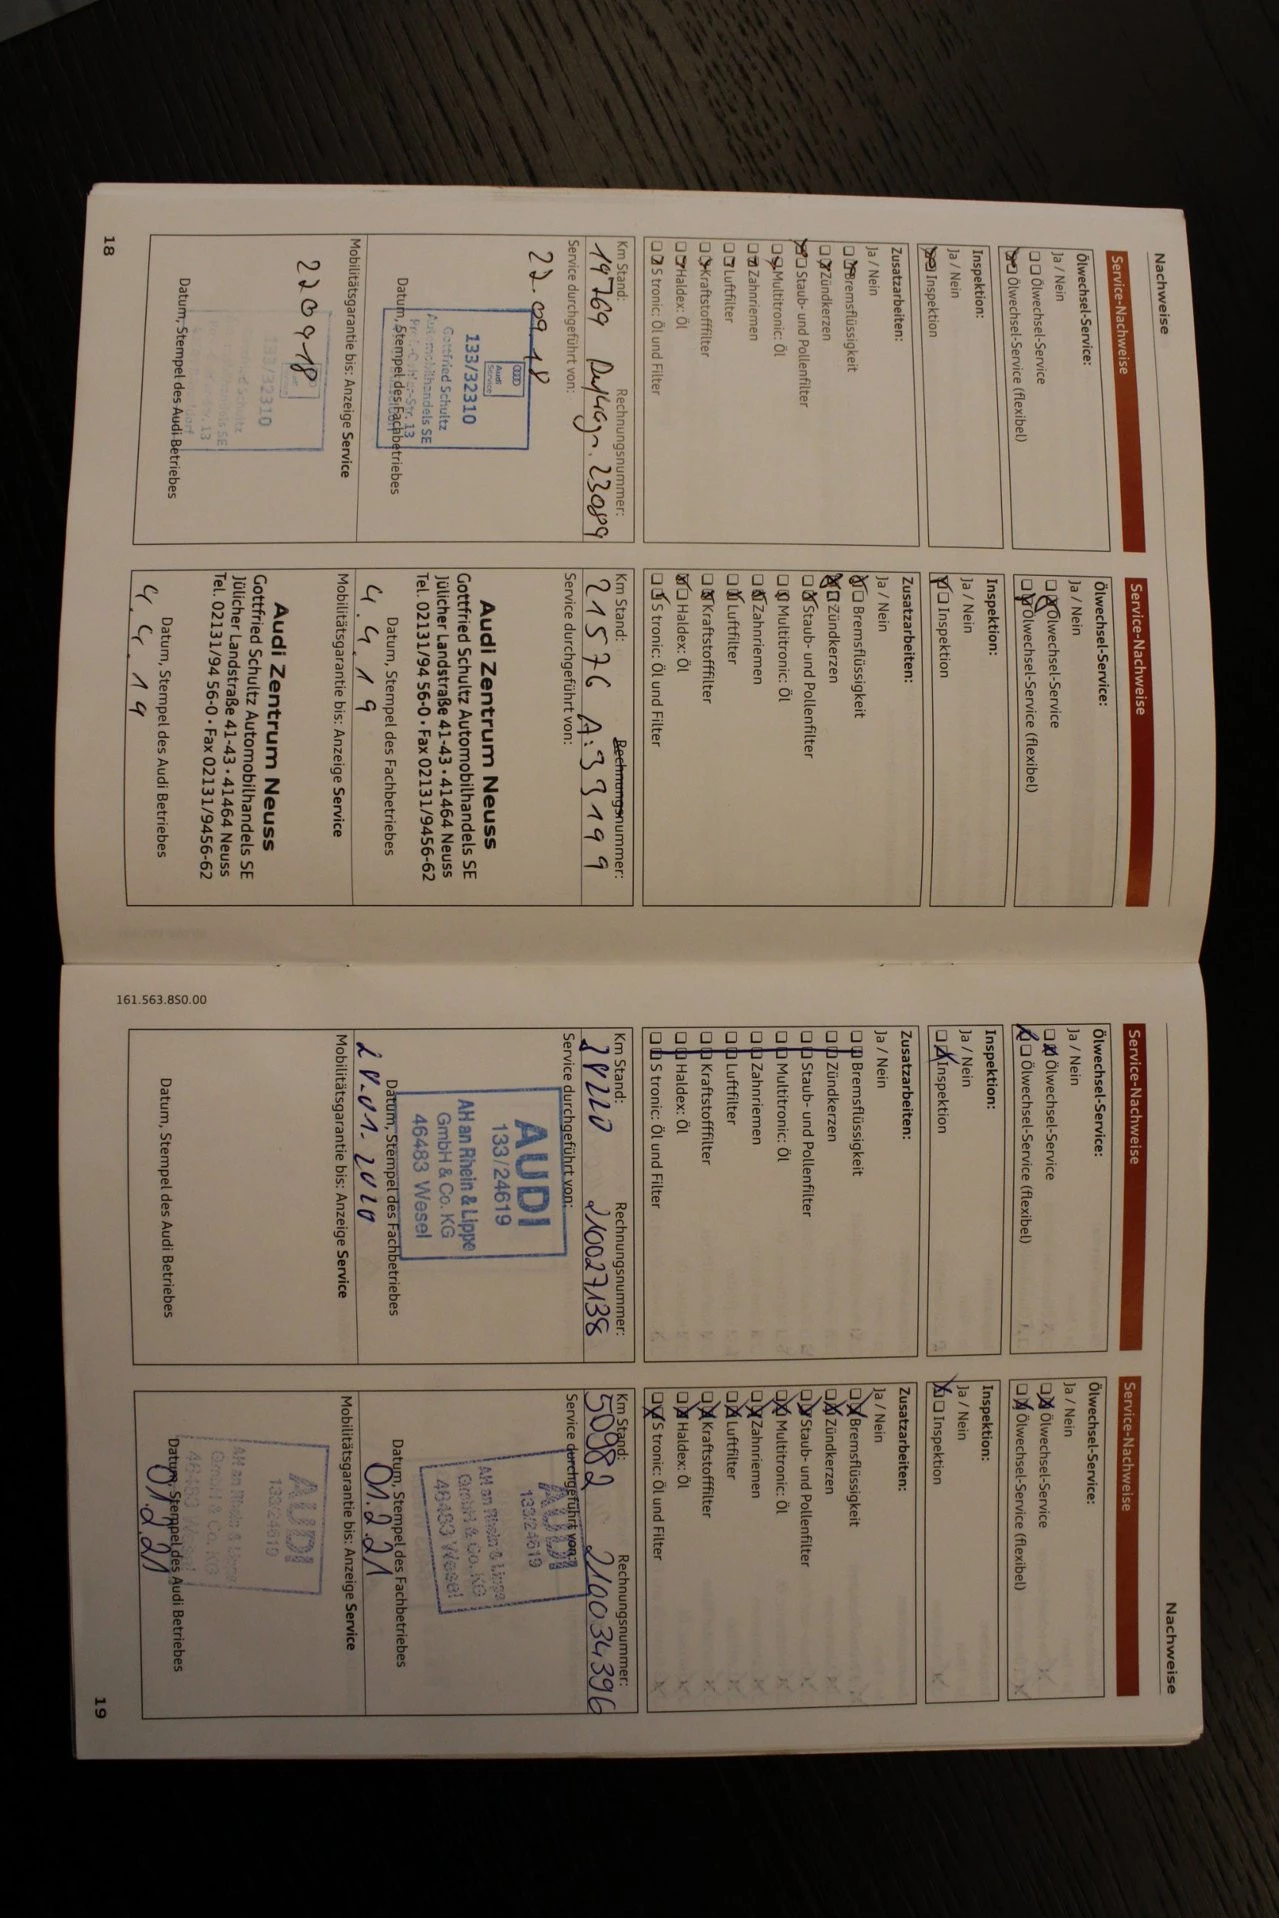 Nachweise
Service-Nachweise
Ölwechsel-Service:
Ja / Nein
Ölwechsel-Service
Ölwechsel-Service (flexibel)
Inspektion:
Ja / Nein
Inspektion
Zusatzarbeiten:
Ja / Nein
Bremsflüssigkeit
Zündkerzen
Staub- und Pollenfilter
Multitronic: Öl
Zahnriemen
Luftfilter
Kraftstofffilter
Haldex: Öl
S tronic: Öl und Filter
Km Stand: Rechnungsnummer:
19769 23089
Service durchgeführt von:
22.09.18
Audi
Service
133/32310
Gottfried Schultz
Automobilhandels SE
Datum, Stempel des Fachbetriebes
Mobilitätsgarantie bis: Anzeige Service
220918
133/32310
Datum, Stempel des Audi Betriebes
18
Service-Nachweise
Ölwechsel-Service:
Ja / Nein
Ölwechsel-Service
Ölwechsel-Service (flexibel)
Inspektion:
Ja / Nein
Inspektion
Zusatzarbeiten:
Ja / Nein
Bremsflüssigkeit
Zündkerzen
Staub- und Pollenfilter
Multitronic: Öl
Zahnriemen
Luftfilter
Kraftstofffilter
Haldex: Öl
S tronic: Öl und Filter
Km Stand: Rechnungsnummer:
21576 A:33199
Service durchgeführt von:
Audi Zentrum Neuss
Gottfried Schultz Automobilhandels SE
Jülicher Landstraße 41-43 • 41464 Neuss
Tel. 02131/94 56-0 • Fax 02131/9456-62
Datum, Stempel des Fachbetriebes
4.4.19
Mobilitätsgarantie bis: Anzeige Service
Audi Zentrum Neuss
Gottfried Schultz Automobilhandels SE
Jülicher Landstraße 41-43 • 41464 Neuss
Tel. 02131/94 56-0 • Fax 02131/9456-62
Datum, Stempel des Audi Betriebes
4.4.19
161.563.8S0.00
Service-Nachweise
Ölwechsel-Service:
Ja / Nein
Ölwechsel-Service
Ölwechsel-Service (flexibel)
Inspektion:
Ja / Nein
Inspektion
Zusatzarbeiten:
Ja / Nein
Bremsflüssigkeit
Zündkerzen
Staub- und Pollenfilter
Multitronic: Öl
Zahnriemen
Luftfilter
Kraftstofffilter
Haldex: Öl
S tronic: Öl und Filter
Km Stand: Rechnungsnummer:
210027138
Service durchgeführt von:
AUDI
133/24619
AH an Rhein & Lippe
GmbH & Co. KG
46483 Wesel
Datum, Stempel des Fachbetriebes
Mobilitätsgarantie bis: Anzeige Service
Datum, Stempel des Audi Betriebes
Nachweise
Service-Nachweise
Ölwechsel-Service:
Ja / Nein
Ölwechsel-Service
Ölwechsel-Service (flexibel)
Inspektion:
Ja / Nein
Inspektion
Zusatzarbeiten:
Ja / Nein
Bremsflüssigkeit
Zündkerzen
Staub- und Pollenfilter
Multitronic: Öl
Zahnriemen
Luftfilter
Kraftstofffilter
Haldex: Öl
S tronic: Öl und Filter
Km Stand: Rechnungsnummer:
50982 210034396
Service durchgeführt von:
AUDI
133/24619
AH an Rhein & Lippe
GmbH & Co. KG
46483 Wesel
Datum, Stempel des Fachbetriebes
01.2.21
Mobilitätsgarantie bis: Anzeige Service
AUDI
133/24619
AH an Rhein & Lippe
GmbH & Co. KG
46483 Wesel
Datum, Stempel des Audi Betriebes
01.2.21
19